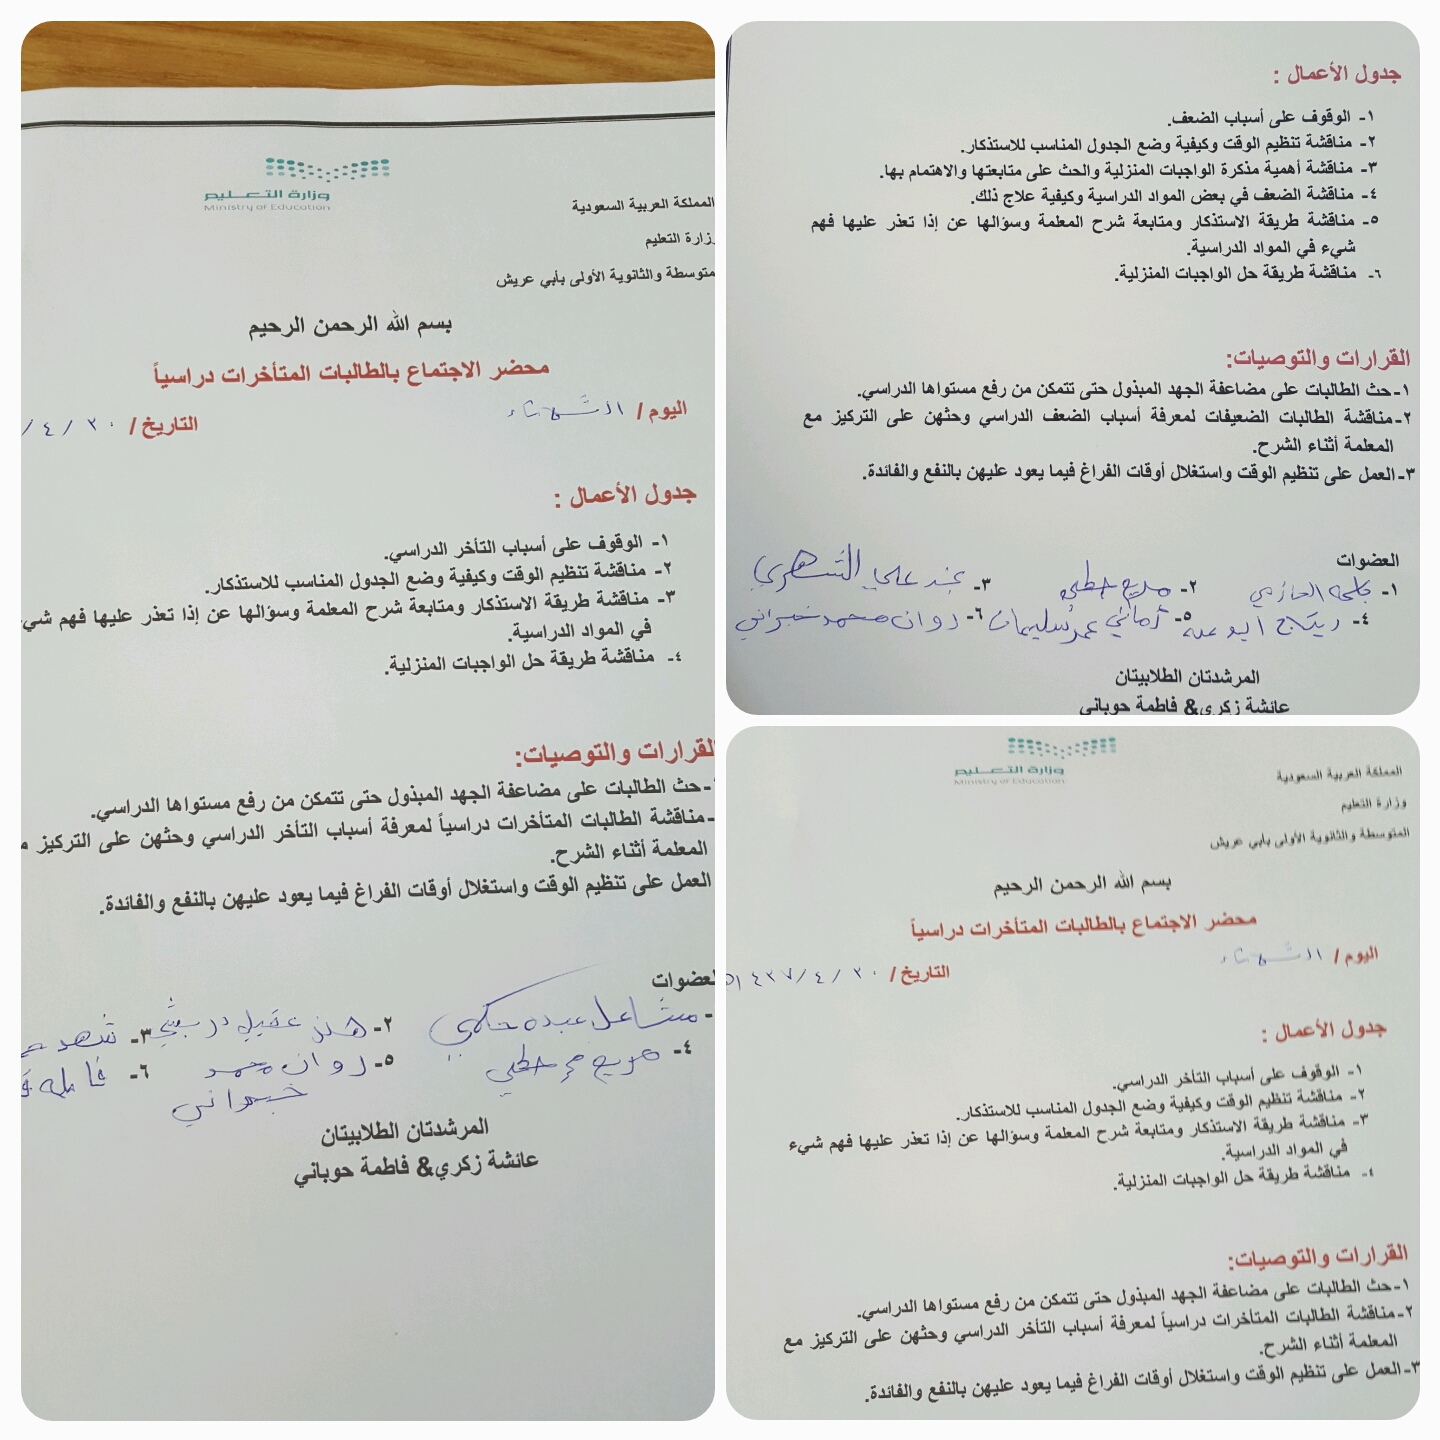 وزارة التعليم
Ministry of Education
المملكة العربية السعودية
وزارة التعليم
متوسطة والثانوية الأولى بأبي عريش
بسم الله الرحمن الرحيم
محضر الاجتماع بالطالبات المتأخرات دراسياً
اليوم / الثلاثاء
التاريخ / ٣٠ / ٤ /
جدول الأعمال :
١- الوقوف على أسباب التأخر الدراسي.
٢- مناقشة تنظيم الوقت وكيفية وضع الجدول المناسب للاستذكار.
٣- مناقشة طريقة الاستذكار ومتابعة شرح المعلمة وسؤالها عن إذا تعذر عليها فهم شيء
في المواد الدراسية.
٤- مناقشة طريقة حل الواجبات المنزلية.
القرارات والتوصيات:
-حث الطالبات على مضاعفة الجهد المبذول حتى تتمكن من رفع مستواها الدراسي.
-مناقشة الطالبات المتأخرات دراسياً لمعرفة أسباب التأخر الدراسي وحثهن على التركيز
المعلمة أثناء الشرح.
العمل على تنظيم الوقت واستغلال أوقات الفراغ فيما يعود عليهن بالنفع والفائدة.
العضوات
- مشاعل عبده حكمي ٢- عقيل ٣- شهد
٤- مريم حطبي ٥- روان محمد خبراني ٦-
المرشدتان الطلابيتان
عائشة زكري& فاطمة حوباني
جدول الأعمال :
١- الوقوف على أسباب الضعف.
٢- مناقشة تنظيم الوقت وكيفية وضع الجدول المناسب للاستذكار.
٣- مناقشة أهمية مذكرة الواجبات المنزلية والحث على متابعتها والاهتمام بها.
٤- مناقشة الضعف في بعض المواد الدراسية وكيفية علاج ذلك.
٥- مناقشة طريقة الاستذكار ومتابعة شرح المعلمة وسؤالها عن إذا تعذر عليها فهم
شيء في المواد الدراسية.
٦- مناقشة طريقة حل الواجبات المنزلية.
القرارات والتوصيات:
١-حث الطالبات على مضاعفة الجهد المبذول حتى تتمكن من رفع مستواها الدراسي.
٢-مناقشة الطالبات الضعيفات لمعرفة أسباب الضعف الدراسي وحثهن على التركيز مع
المعلمة أثناء الشرح.
٣-العمل على تنظيم الوقت واستغلال أوقات الفراغ فيما يعود عليهن بالنفع والفائدة.
العضوات
١- الحازمي ٢- مريم حطبي ٣- علي الشهري
٤- ريتاج ٥- أماني عمر سليمان ٦- روان محمد خبراني
المرشدتان الطلابيتان
عائشة زكري& فاطمة حوباني
وزارة التعليم
Ministry of Education
المملكة العربية السعودية
وزارة التعليم
المتوسطة والثانوية الأولى بأبي عريش
بسم الله الرحمن الرحيم
محضر الاجتماع بالطالبات المتأخرات دراسياً
اليوم / الثلاثاء
التاريخ / ٣٠ / ٤ / ١٤٣٧ه
جدول الأعمال :
١- الوقوف على أسباب التأخر الدراسي.
٢- مناقشة تنظيم الوقت وكيفية وضع الجدول المناسب للاستذكار.
٣- مناقشة طريقة الاستذكار ومتابعة شرح المعلمة وسؤالها عن إذا تعذر عليها فهم شيء
في المواد الدراسية.
٤- مناقشة طريقة حل الواجبات المنزلية.
القرارات والتوصيات:
١-حث الطالبات على مضاعفة الجهد المبذول حتى تتمكن من رفع مستواها الدراسي.
٢-مناقشة الطالبات المتأخرات دراسياً لمعرفة أسباب التأخر الدراسي وحثهن على التركيز مع
المعلمة أثناء الشرح.
٣-العمل على تنظيم الوقت واستغلال أوقات الفراغ فيما يعود عليهن بالنفع والفائدة.